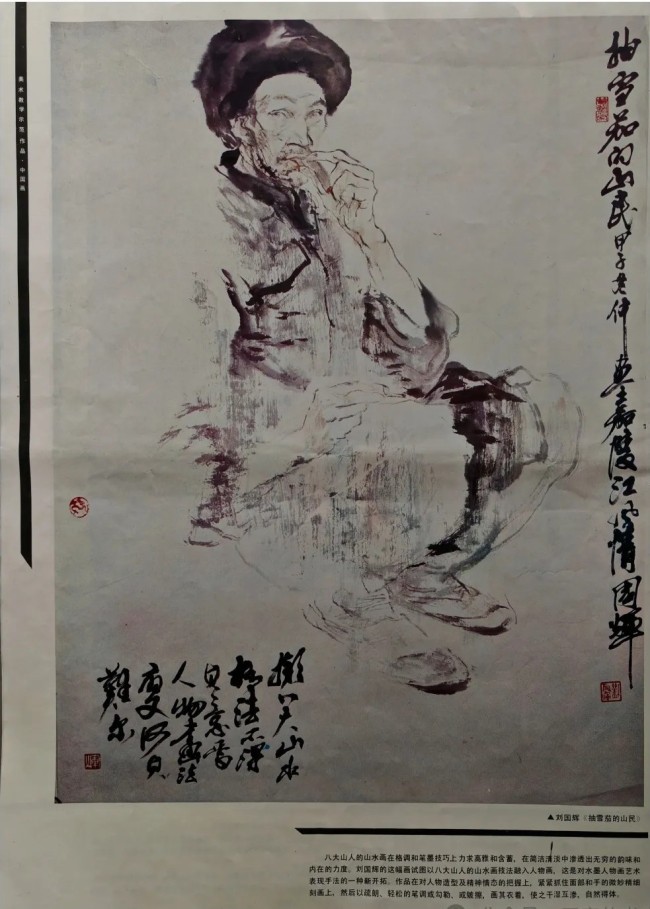 抽雪茄的山民 甲子 仲 嘉陵江风情 国辉
美术教学示范作品·中国画
拟八大山水
法不深
其意
人物画法
更何其
难尔
▲刘国辉《抽雪茄的山民》
八大山人的山水画在格调和笔墨技巧上力求高雅和含蓄,在简洁清淡中渗透出无穷的韵味和
内在的力度。刘国辉的这幅画试图以八大山人的山水画技法融入人物画,这是对水墨人物画艺术
表现手法的一种新开拓。作品在对人物造型及精神情态的把握上,紧紧抓住面部和手的微妙精细
刻画上,然后以疏朗、轻松的笔调或勾勒,或皴擦,画其衣着,使之干湿互渗,自然得体。